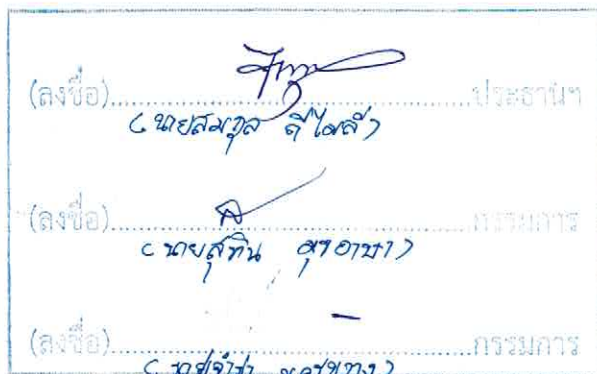 (ลงชื่อ)..........ประธานฯ
(นายสมกุล ดีไพสี)
(ลงชื่อ)..........กรรมการ
(นายสุทิน สุขอาษา)
(ลงชื่อ)..........กรรมการ